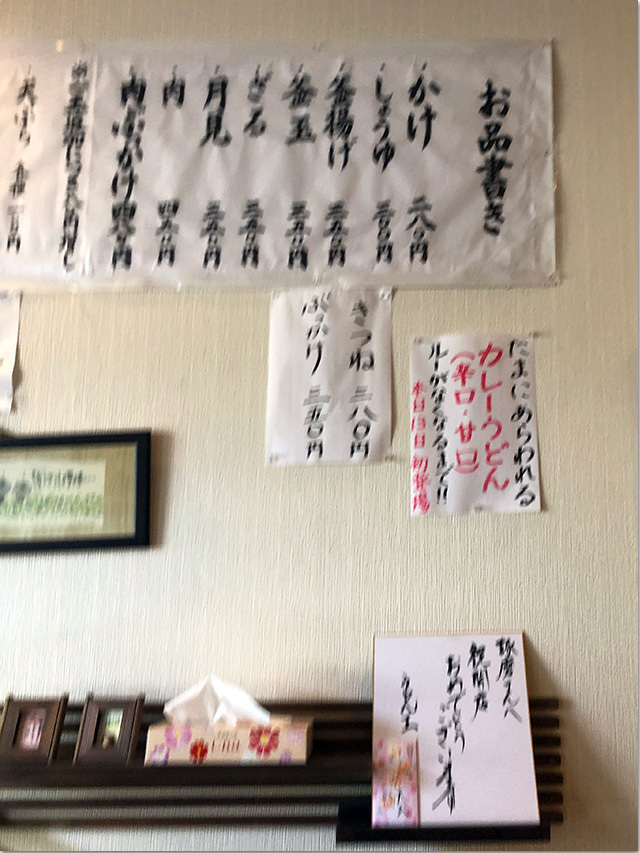 お品書き
かけ 二八〇円
しょうゆ 三〇〇円
釜揚げ 三五〇円
釜玉 三五〇円
ざる 三五〇円
月見 三五〇円
肉 四五〇円
肉ぶっかけ
天ぷら
きつね 三八〇円
ぶっかけ 三五〇円
たまにあらわれる
カレーうどん
(辛口・甘口)
ルーがなくなるまで!!
本日13日 初登場
琢磨さんへ
祝開店
おめでとう
ございます